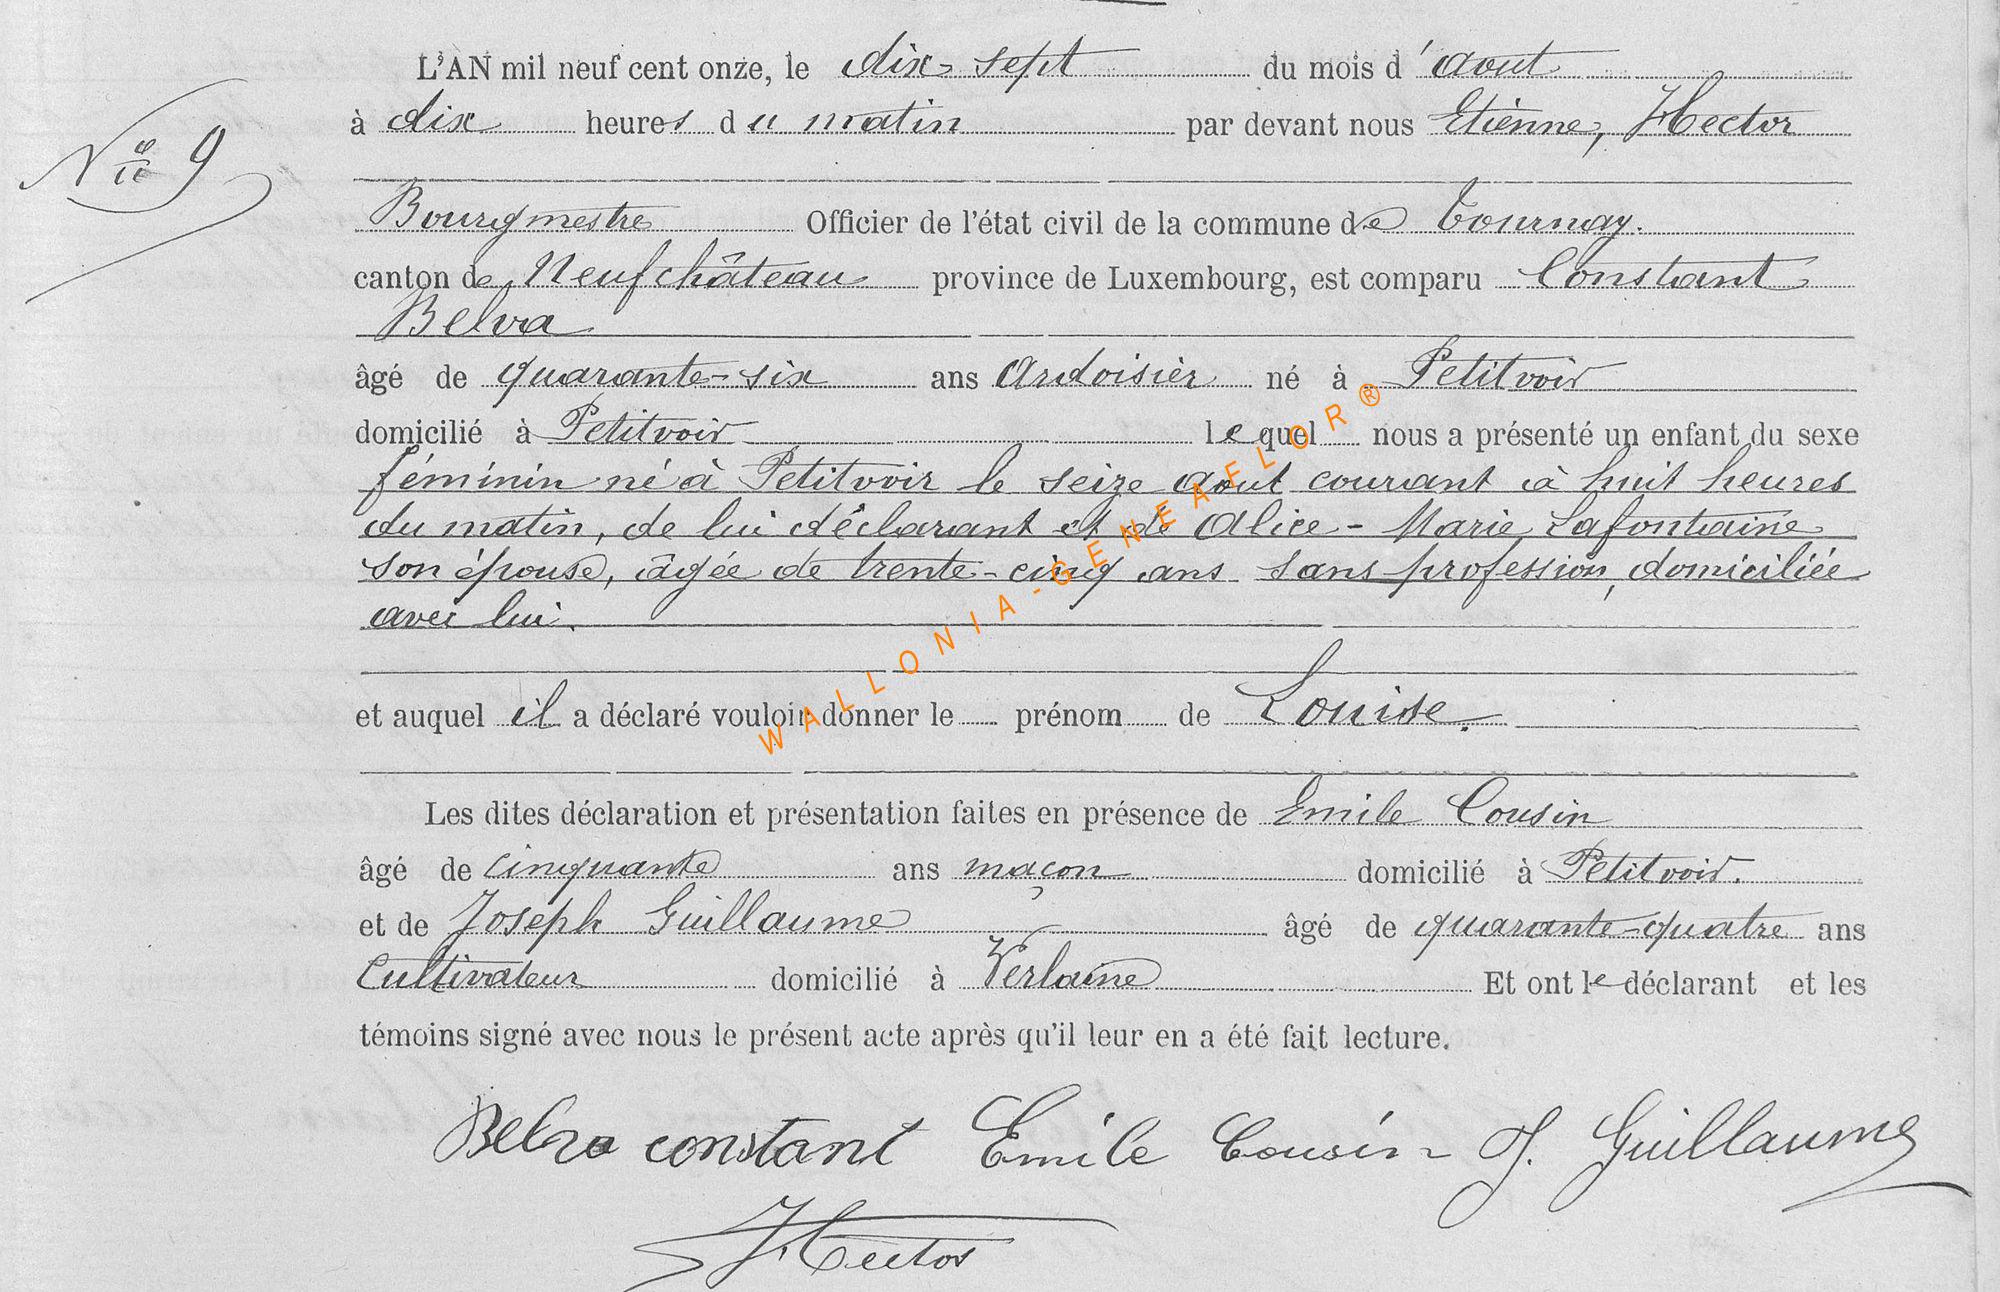 L'AN mil neuf cent onze, le dix-sept du mois d'aout
N° 9
à dix heures du matin par devant nous Etienne, Hector
Bourgmestre Officier de l'état civil de la commune de Tournay.
canton de Neufchâteau province de Luxembourg, est comparu Constant
Belva
âgé de quarante-six ans Ardoisier né à Petitvoir
domicilié à Petitvoir lequel nous a présenté un enfant du sexe
féminin né à Petitvoir le seize aout courant à huit heures
du matin, de lui déclarant et de Alice-Marie Lafontaine
son épouse, âgée de trente-cinq ans sans profession, domiciliée
avec lui.
et auquel il a déclaré vouloir donner le prénom de Louise.
Les dites déclaration et présentation faites en présence de Emile Cousin
âgé de cinquante ans maçon domicilié à Petitvoir.
et de Joseph Guillaume âgé de quarante-quatre ans
Cultivateur domicilié à Verlaine Et ont le déclarant et les
témoins signé avec nous le présent acte après qu'il leur en a été fait lecture.
Belva constant Emile Cousin J. Guillaume
Hector
WALLONIA-GENEAFELOR®